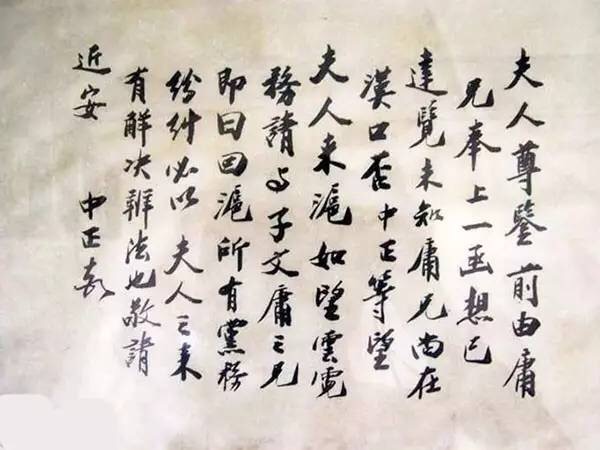 夫人尊鑒前由庸
兄奉上一函想已
達覽未知庸兄尚在
漢口否中正等望
夫人来滬如望雲霓
務請与子文庸之兄
即日回滬所有黨務
纷纠必以夫人之来
有解决辦法也敬請
近安 中正敬